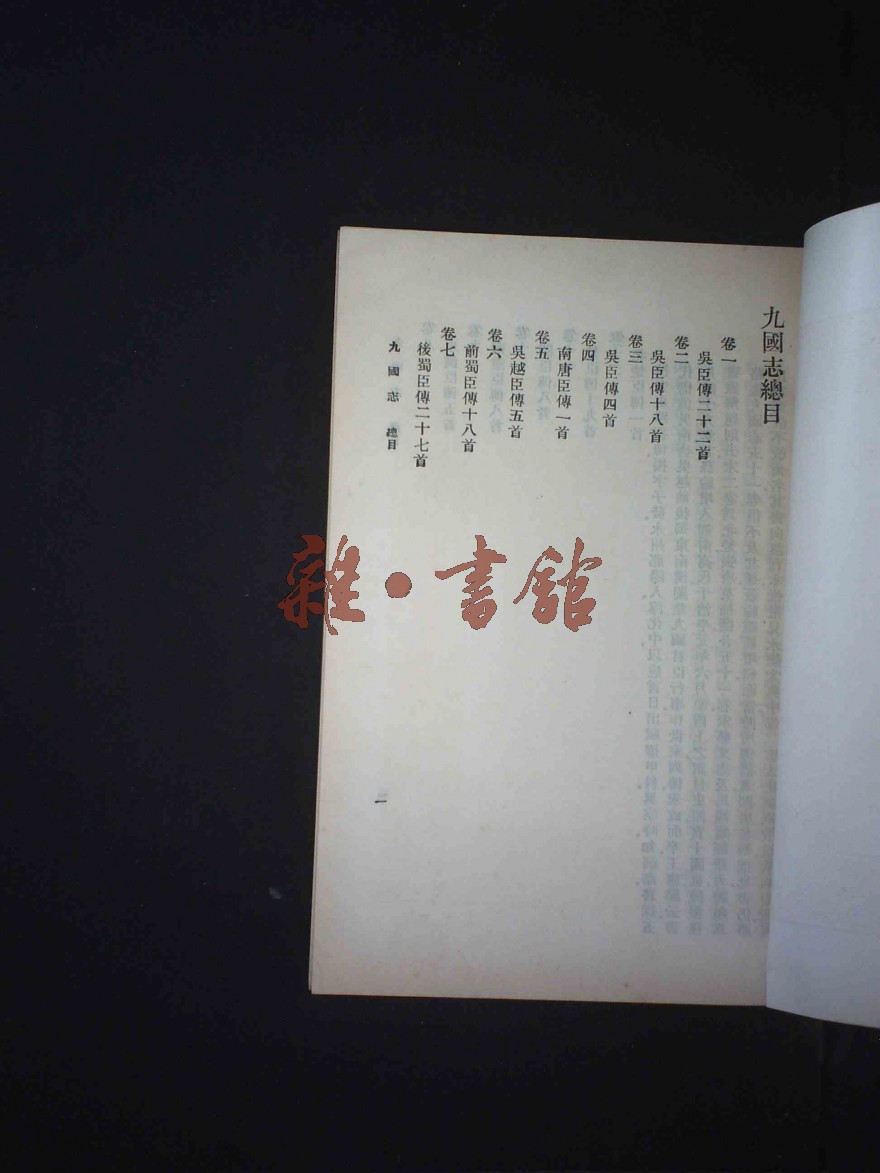 九國志總目
卷一
吳臣傳二十二首
卷二
吳臣傳十八首
卷三
吳臣傳四首
卷四
南唐臣傳一首
卷五
吳越臣傳五首
卷六
前蜀臣傳十八首
卷七
後蜀臣傳二十七首
九國志 總目
一
雜·書館